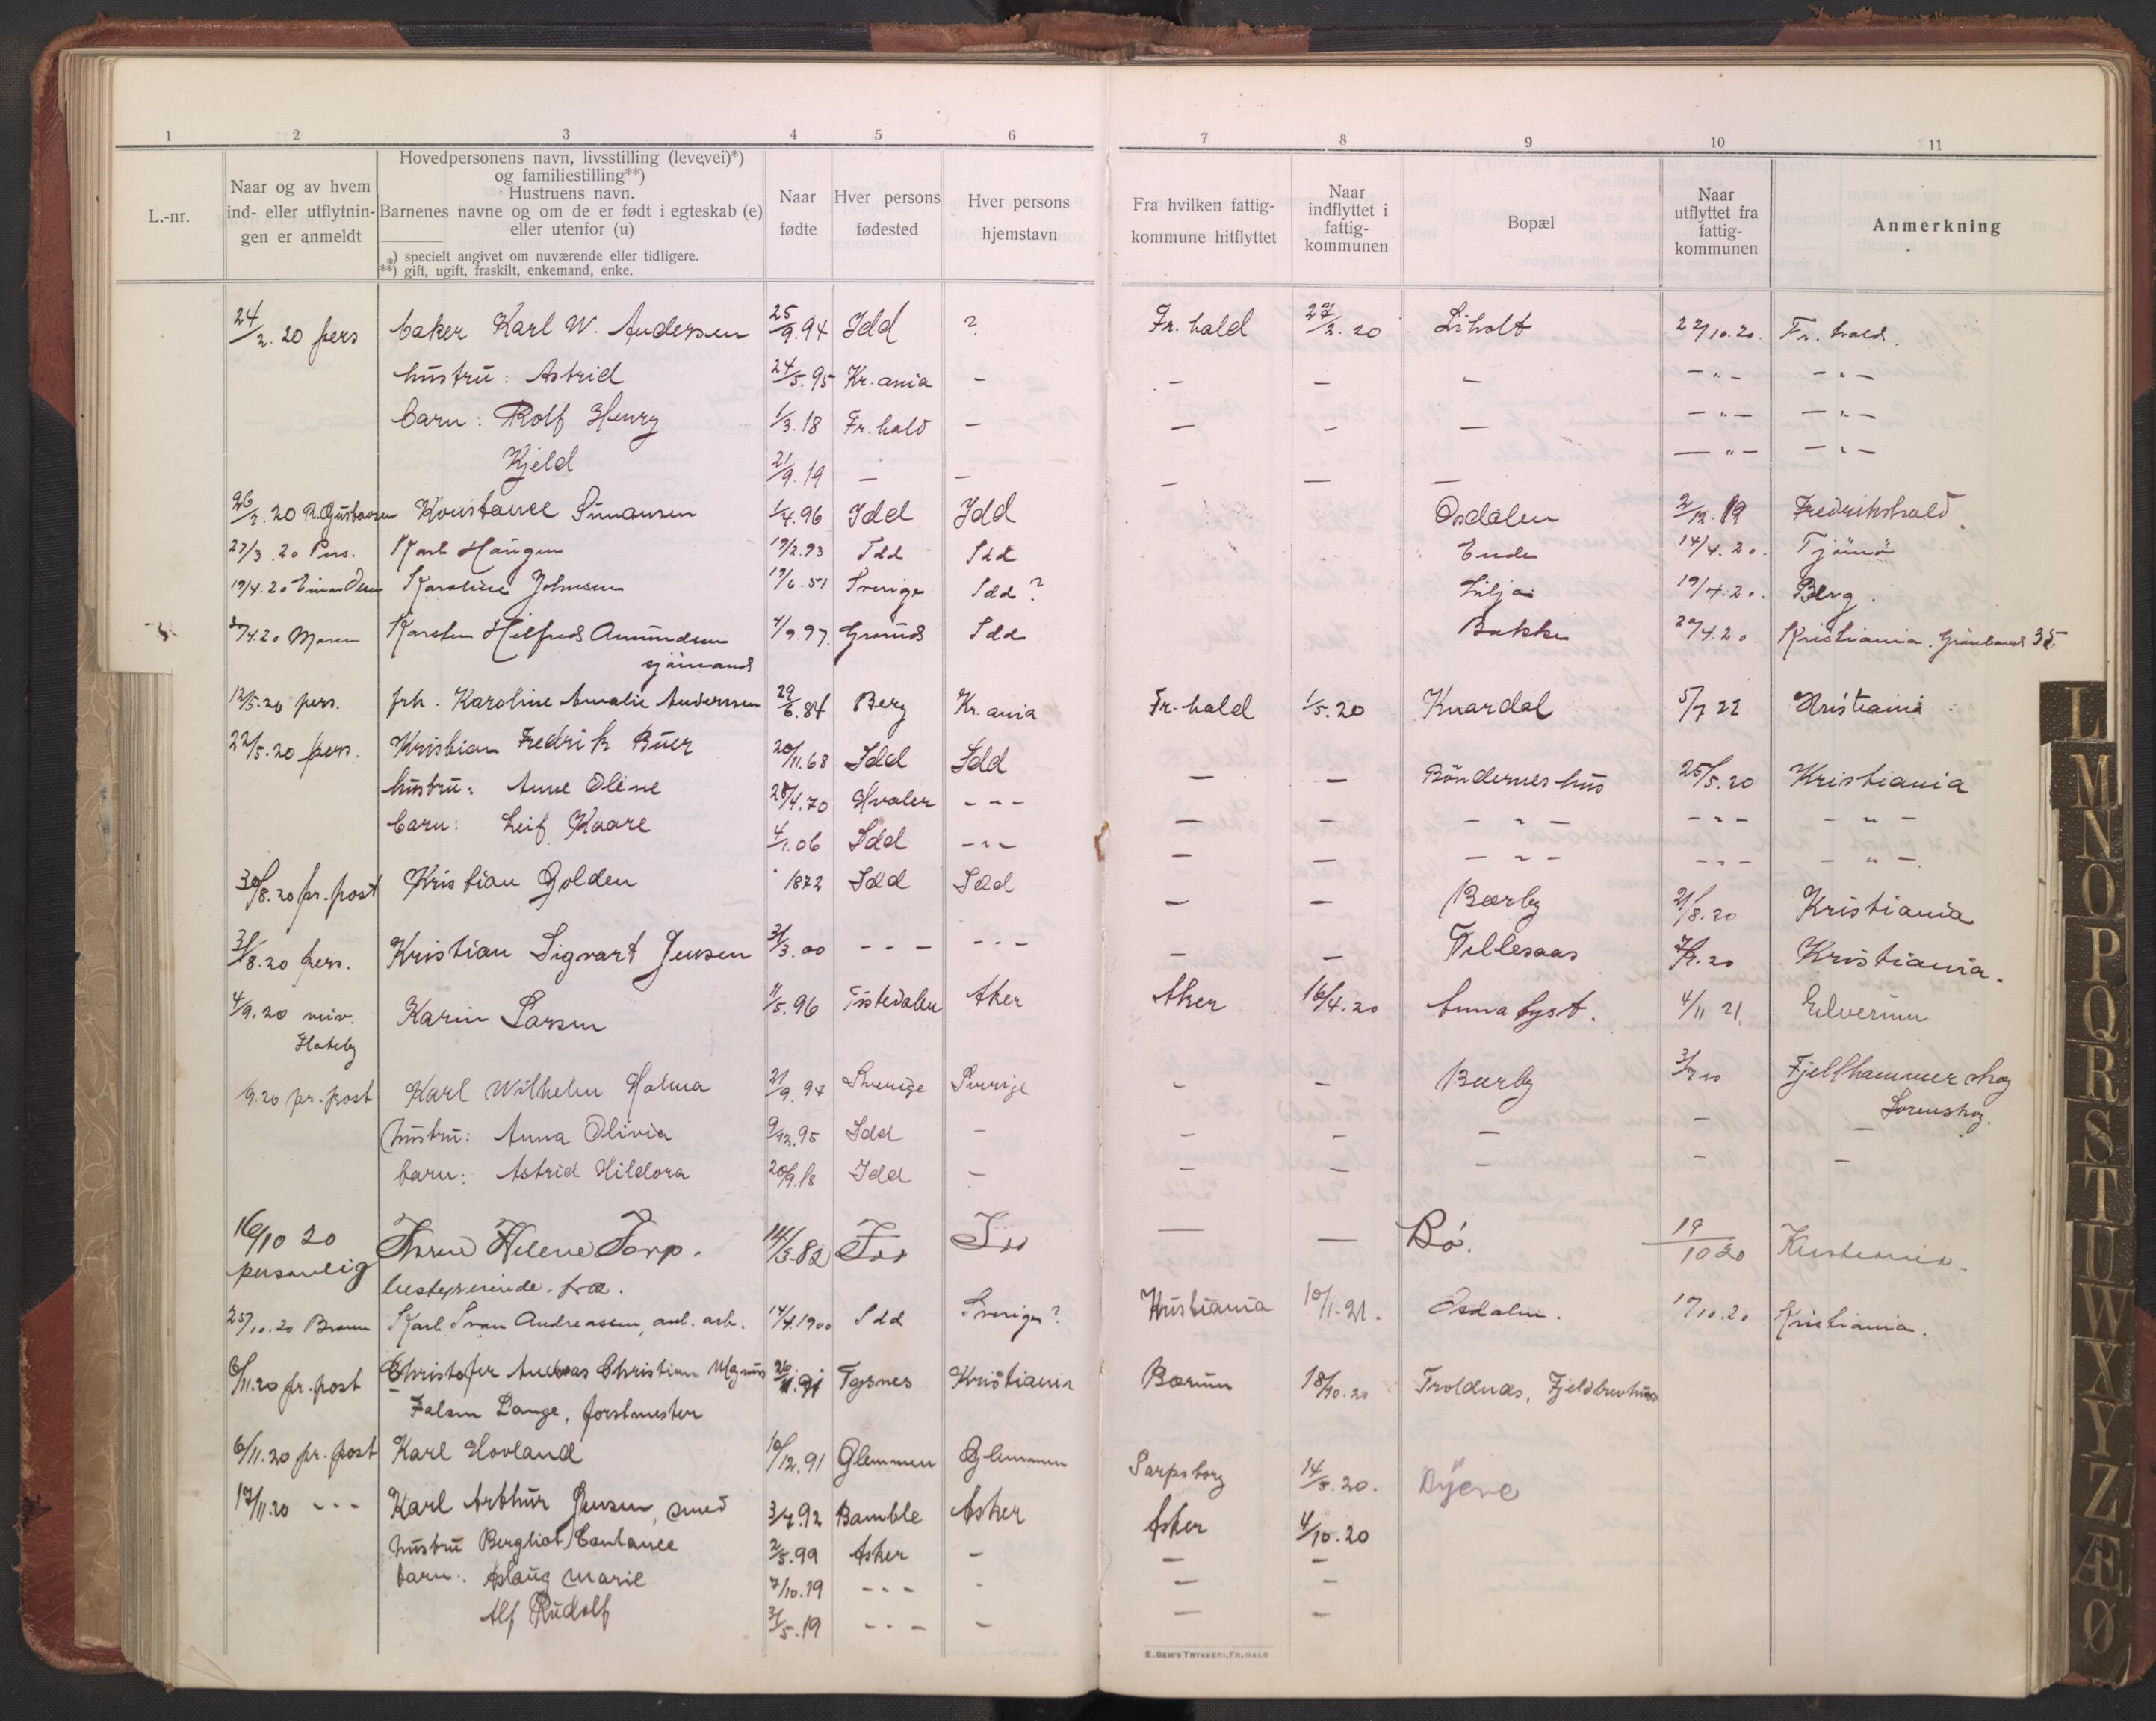 1 2 3 4 5 6 7 8 9 10 11
L.-nr.
Naar og av hvem
ind- eller utflytnin-
gen er anmeldt
Hovedpersonens navn, livsstilling (levevei)*)
og familiestilling**)
Hustruens navn.
Barnenes navne og om de er født i egteskab (e)
eller utenfor (u)
*) specielt angivet om nuværende eller tidligere.
**) gift, ugift, fraskilt, enkemand, enke.
Naar
fødte
Hver persons
fødested
Hver persons
hjemstavn
Fra hvilken fattig-
kommune hitflyttet
Naar
indflyttet i
fattig-
kommunen
Bopæl
Naar
utflyttet fra
fattig-
kommunen
Anmerkning
24/2. 20 pers baker Karl W. Andersen 25/9.94 Idd ? Fr. hald 27/2. 20 Liholt 22/10.20. Fr. hald.
hustru: Astrid 24/5.95 Kr.ania - - - - -"- -"-
barn: Rolf Henry 1/3.18 Fr.hald - - - - -"- -"-
Kjeld 21/9.19 - - - - - -"- -"-
26/2.20 R.Gustavsen Konstance Simansen 1/4.96 Idd Idd Osdalen 2/12.19 Fredrikshald.
27/3.20 Pers. Karl Haugen 19/2.93 Idd Idd Ende 14/4.20. Tjömö
19/4.20 Karoline Johnsen 19/6.51 Sverige Idd? Lilja 19/4.20. Berg.
30/4.20 Maren Karsten Hilfred Amundsen 4/9.97. Grimis Idd Bakke 29/4.20 Kristiania. 35.
sjömand
12/5.20 pers. frk. Karoline Amalie Anderssen 29/6.84 Berg Kr.ania Fr.hald 1/5.20 Knardal 5/7 22 Kristiania
22/5.20 pers. Kristian Fredrik Buer 20/11.68 Idd Idd - - Böndernes hus 25/5.20 Kristiania
hustru: Anne Oline 28/4.70 Hvaler -"- - - -"- -"- -"-
barn: Leif Kaare 4/1.06 Idd -"- - - -"- -"- -"-
30/8.20 pr. post Kristian Golden 1872 Idd Idd - - Bærby 21/8.20 Kristiania
31/8.20 pers. Kristian Sigvart Jensen 31/3.00 --- --- - - Tillesaas 7/9.20 Kristiania.
4/9.20 Karin Larsen 11/5.96 Tistedalen Aker Aker 16/4.20 Anna lyst. 4/11 21. Elverum
Flateby
/9.20 pr. post Karl Wilhelm Holma 21/9.94 Sverige Sverige - - Bærby 3/9.20 Fjellhammer skog
Lørenskog.
hustru: Anna Olivia 9/12.95 Idd - - - - - -
barn: Astrid Hildora 20/9.18 Idd - - - - - -
16/10 20 Helene Torp. 14/3.82 Idd Idd - - Bö. 19/10 20 Kristiania.
personlig bestyrerinde. fra.
25/10.20 Braun Karl Ivan Andreassen, anl. arb. 14/4.1900 Idd Sverige? Kristiania 10/1.21. Osdalen. 17/10.20 Kristiania.
6/11.20 pr. post Christofer Andreas Christian Magnus 26/11.91 Tysnes Kristiania Bærum 18/10.20 Troldnæs, Fjeldbrevhus
Falsen Lange, forstmester
6/11.20 pr. post Karl Hovland 10/12.91 Glemmen Glemmen Sarpsborg 14/5.20. Dyene
17/11.20 --- Karl Arthur Jensen, smed 3/7.92 Bamble Asker Asker 4/10.20
hustru Bergliot Constance 2/5.99 Asker - - -
barn: Aslaug Marie 7/10.19 --- - - -
Alf Rudolf 31/5.19 --- - - -
E. SEM'S TRYKKERI, FR.HALD
L
M
N
O
P
Q
R
S
T
U
W
X
Y
Z
Æ
Ø